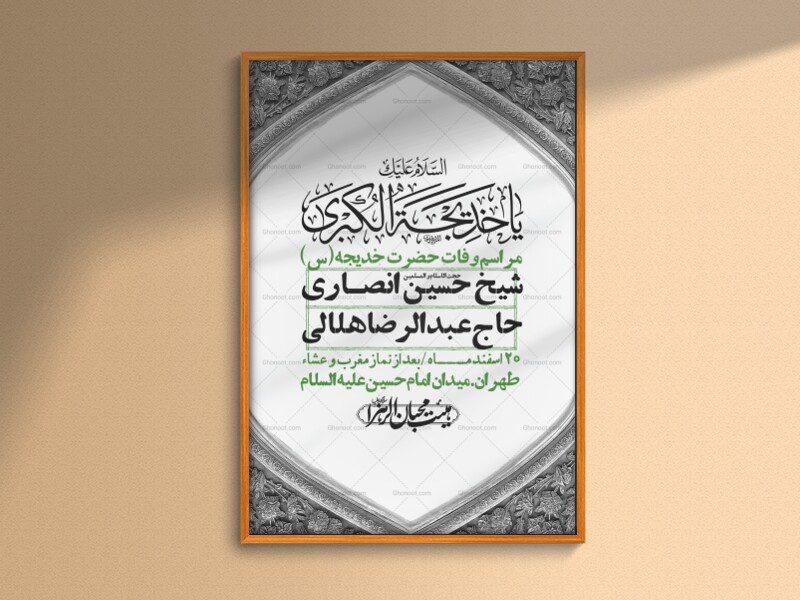 السَّلَامُ عَلَيْكِ
يَا خَدِيجَةَ الْكُبْرَى
مراسم وفات حضرت خدیجه (س)
حجت الاسلام والمسلمین
شیخ حسین انصاری
حاج عبدالرضا هلالی
۲۰ اسفند ماه / بعد از نماز مغرب و عشاء
طهران.میدان امام حسین علیه السلام
هیئت محبان الزهرا
Ghonoot.com